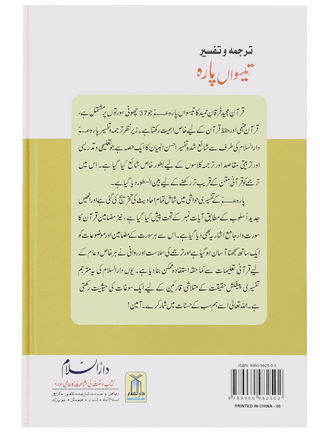 ترجمہ و تفسیر
تیسواں پارہ
قرآن مجید فرقان حمید کا تیسواں پارہ عم جو 37 چھوٹی سورتوں پر مشتمل ہے،
قرآن فہمی اور حفظِ قرآن کے لیے خاص اہمیت رکھتا ہے۔ زیر نظر ترجمہ و تفسیر پارہ عم
دارالسلام کی طرف سے شائع شدہ تفسیر احسن البیان کا ایک حصہ ہے جو تعلیمی و تدریسی
اور تربیتی مقاصد اور ترجمہ کلاسوں کے لیے بطور خاص شائع کیا گیا ہے۔ اس میں
ترجمے کو قرآنی متن کے قریب تر رکھنے کے لیے بین السطور دیا گیا ہے۔
پارہ عم کے تفسیری حواشی میں شامل تمام احادیث کی تخریج کی گئی ہے اور انھیں
جدید اسلوب کے مطابق آیات نمبر کے تحت پیش کیا گیا ہے، نیز مضامین قرآن کا
سورت وار جامع اشاریہ بھی دیا گیا ہے۔ اس سے ہر سورت کے مضامین اور موضوعات کو
ایک ساتھ سمجھنا آسان ہو گیا ہے اور ترجمے کی سلاست اور روانی نے ہر خاص و عام کے
لیے قرآنی تعلیمات سے کما حقہ استفادہ ممکن بنا دیا ہے۔ یوں دارالسلام کی یہ مترجم
تفسیری پیشکش حقیقت کے متلاشی قارئین کے لیے ایک سوغات کی حیثیت رکھتی
ہے۔ اللہ تعالیٰ اسے ہم سب کے حسنات میں شمار کرے۔ آمین!
دارالسلام
کتاب و سنت کی اشاعت کا عالمی ادارہ
دارالسلام
PRINTED IN CHINA - 05